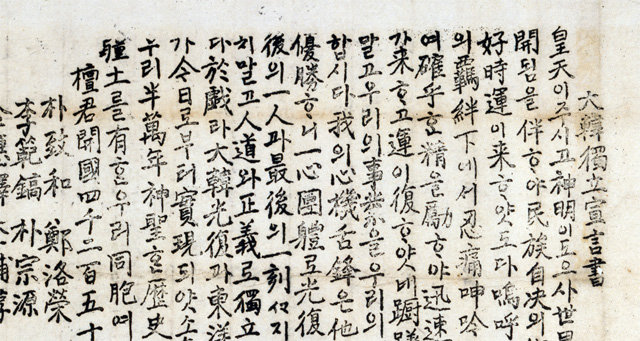 大韓獨立宣言書
皇天이주시고神明이도으사世
開됨을伴ᄒᆞ야民族自决의
好時運이来ᄒᆞ얏도다嗚呼
의羈絆下에서忍痛呻吟
여確乎ᄒᆞᆫ精을勵ᄒᆞ야迅速
가来ᄒᆞ고運이復ᄒᆞ얏스네躊躇
말고우리의事業을우리의
합시다我의心機舌鋒은他
優勝ᄒᆞ니一心團體로光復
後의一人과最後의一刻ᄭᆞ지
치말고人道와正義로獨立
다於戲라大韓光復과東洋
가今日로부터實現되얏소
우리半萬年神聖ᄒᆞᆫ歷史
疆土를有ᄒᆞᆫ우리同胞여
檀君開國四千二百五十
朴致和 鄭洛榮
李範鎬 朴宗源